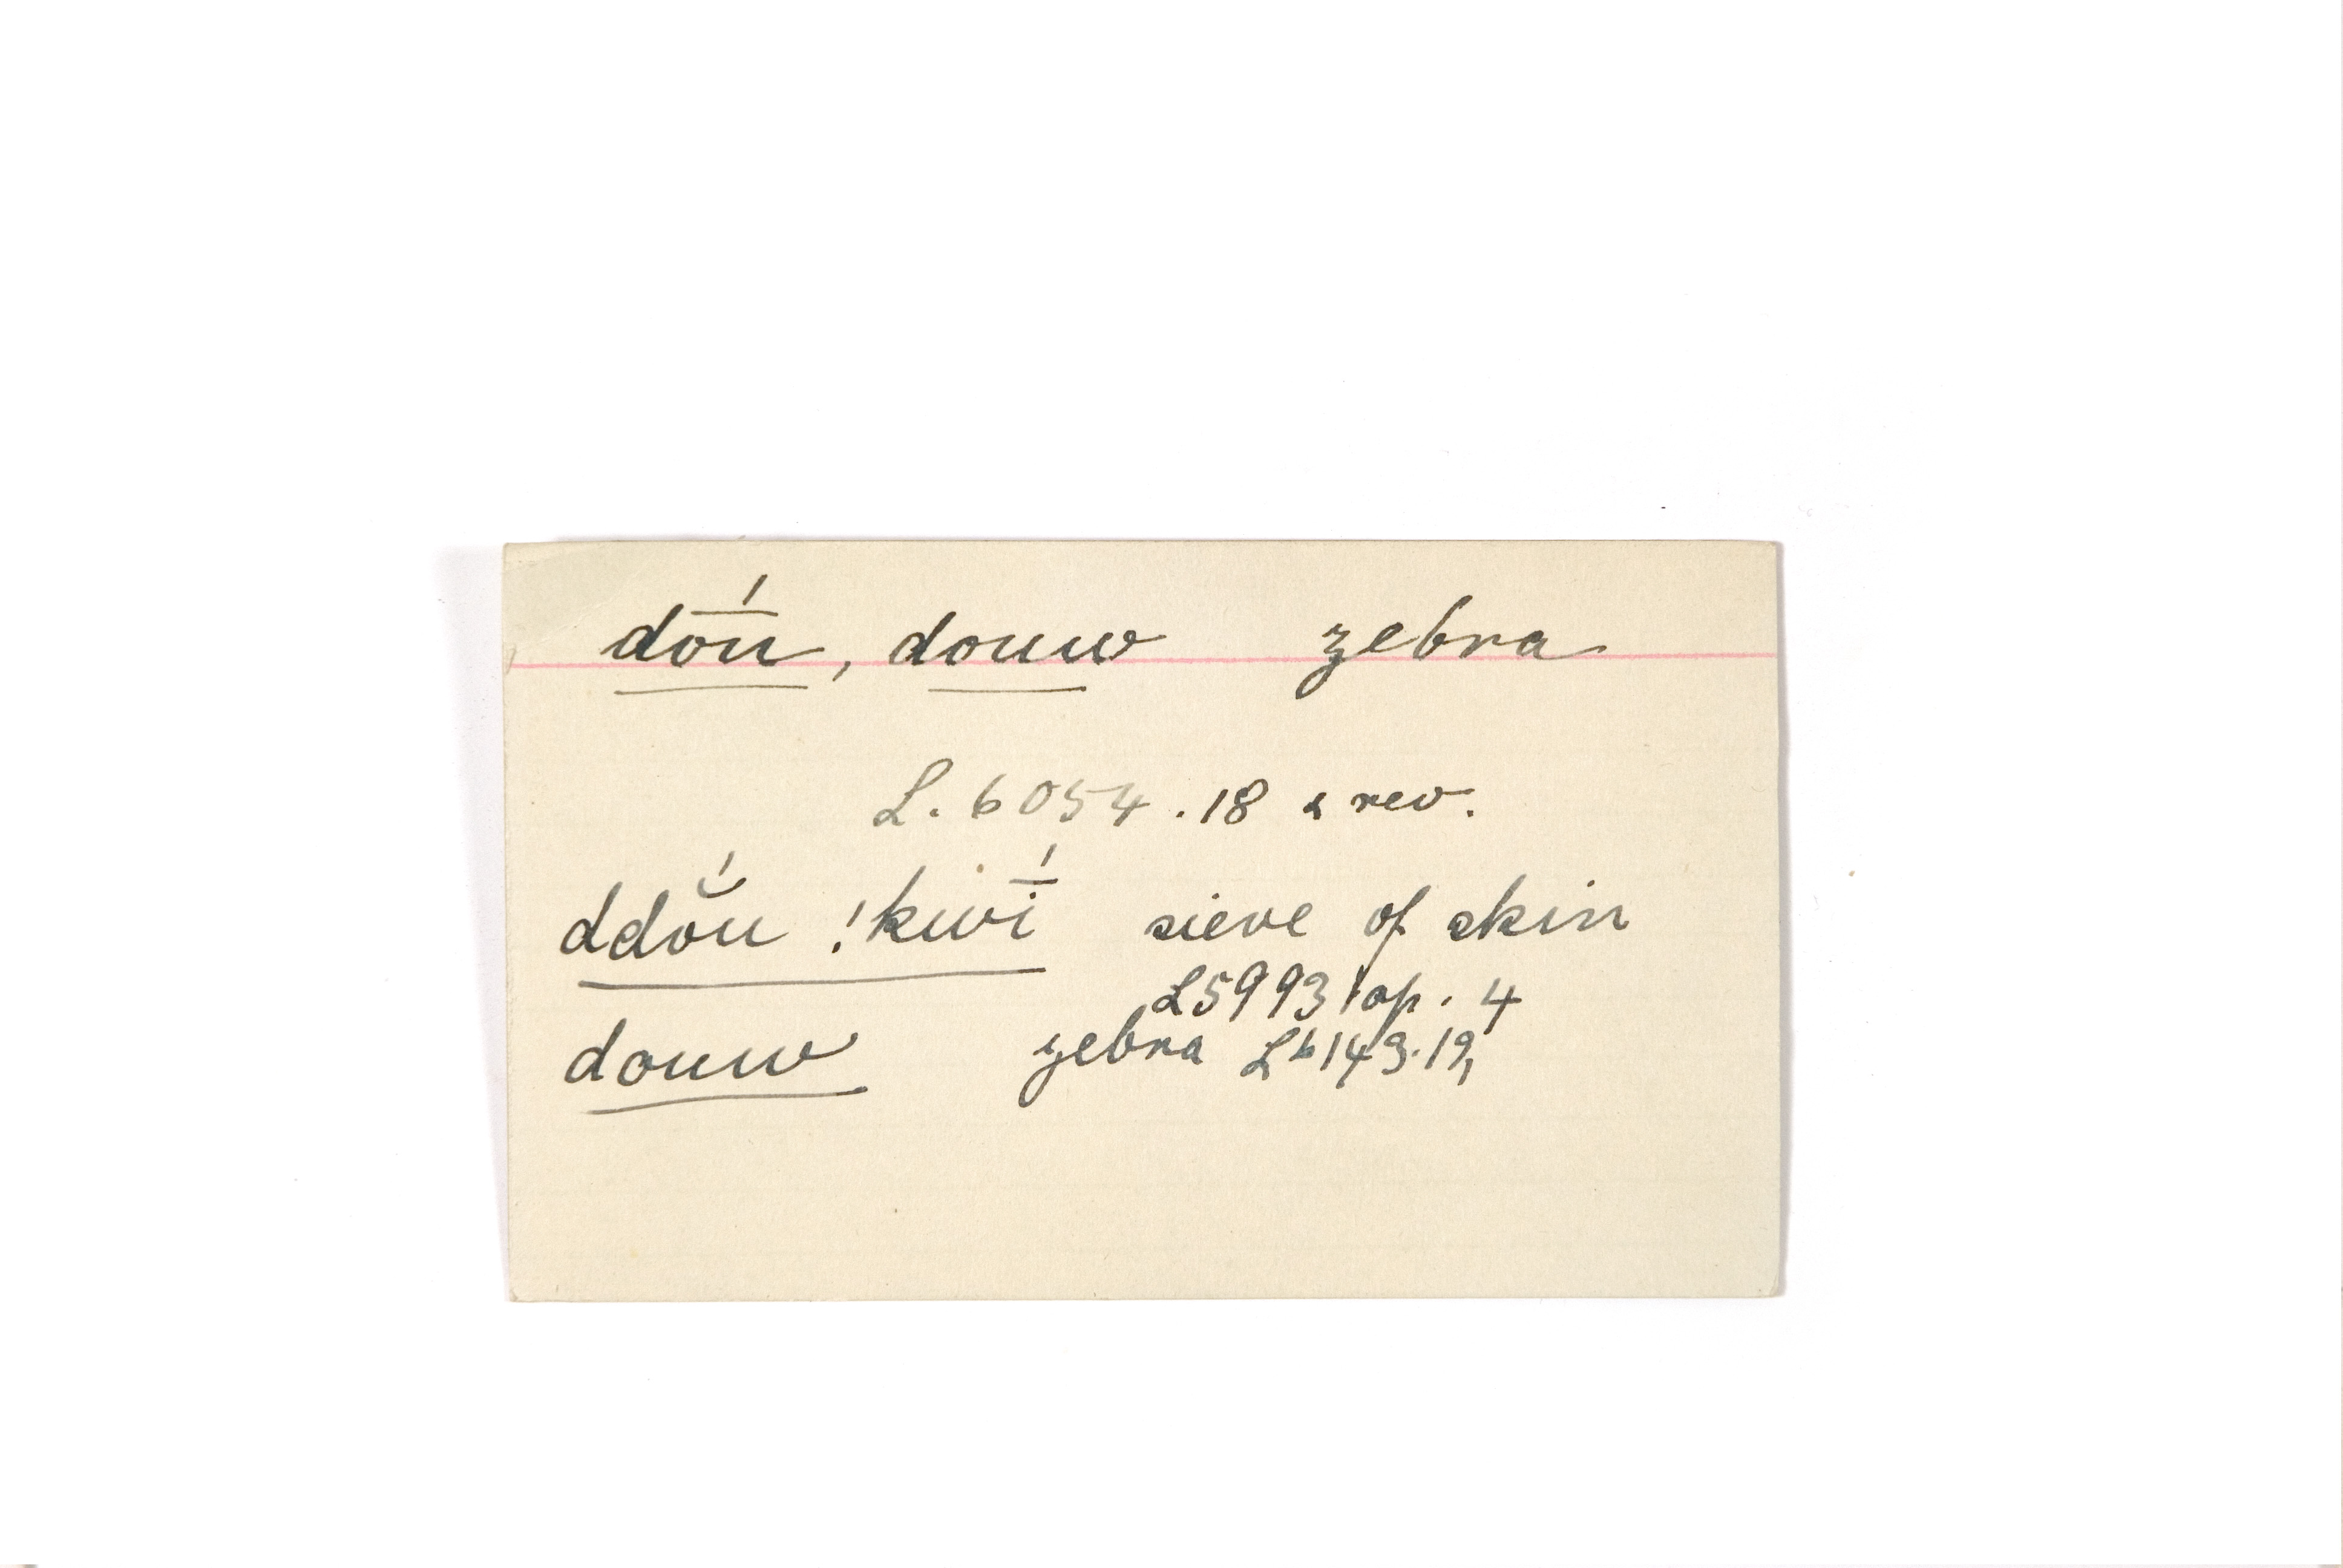 dṓu, douw zebra
L. 6054.18 & rev.
ddŏ́u !kwī́ sieve of skin
L5993 op. 4
douw zebra L6143.19,